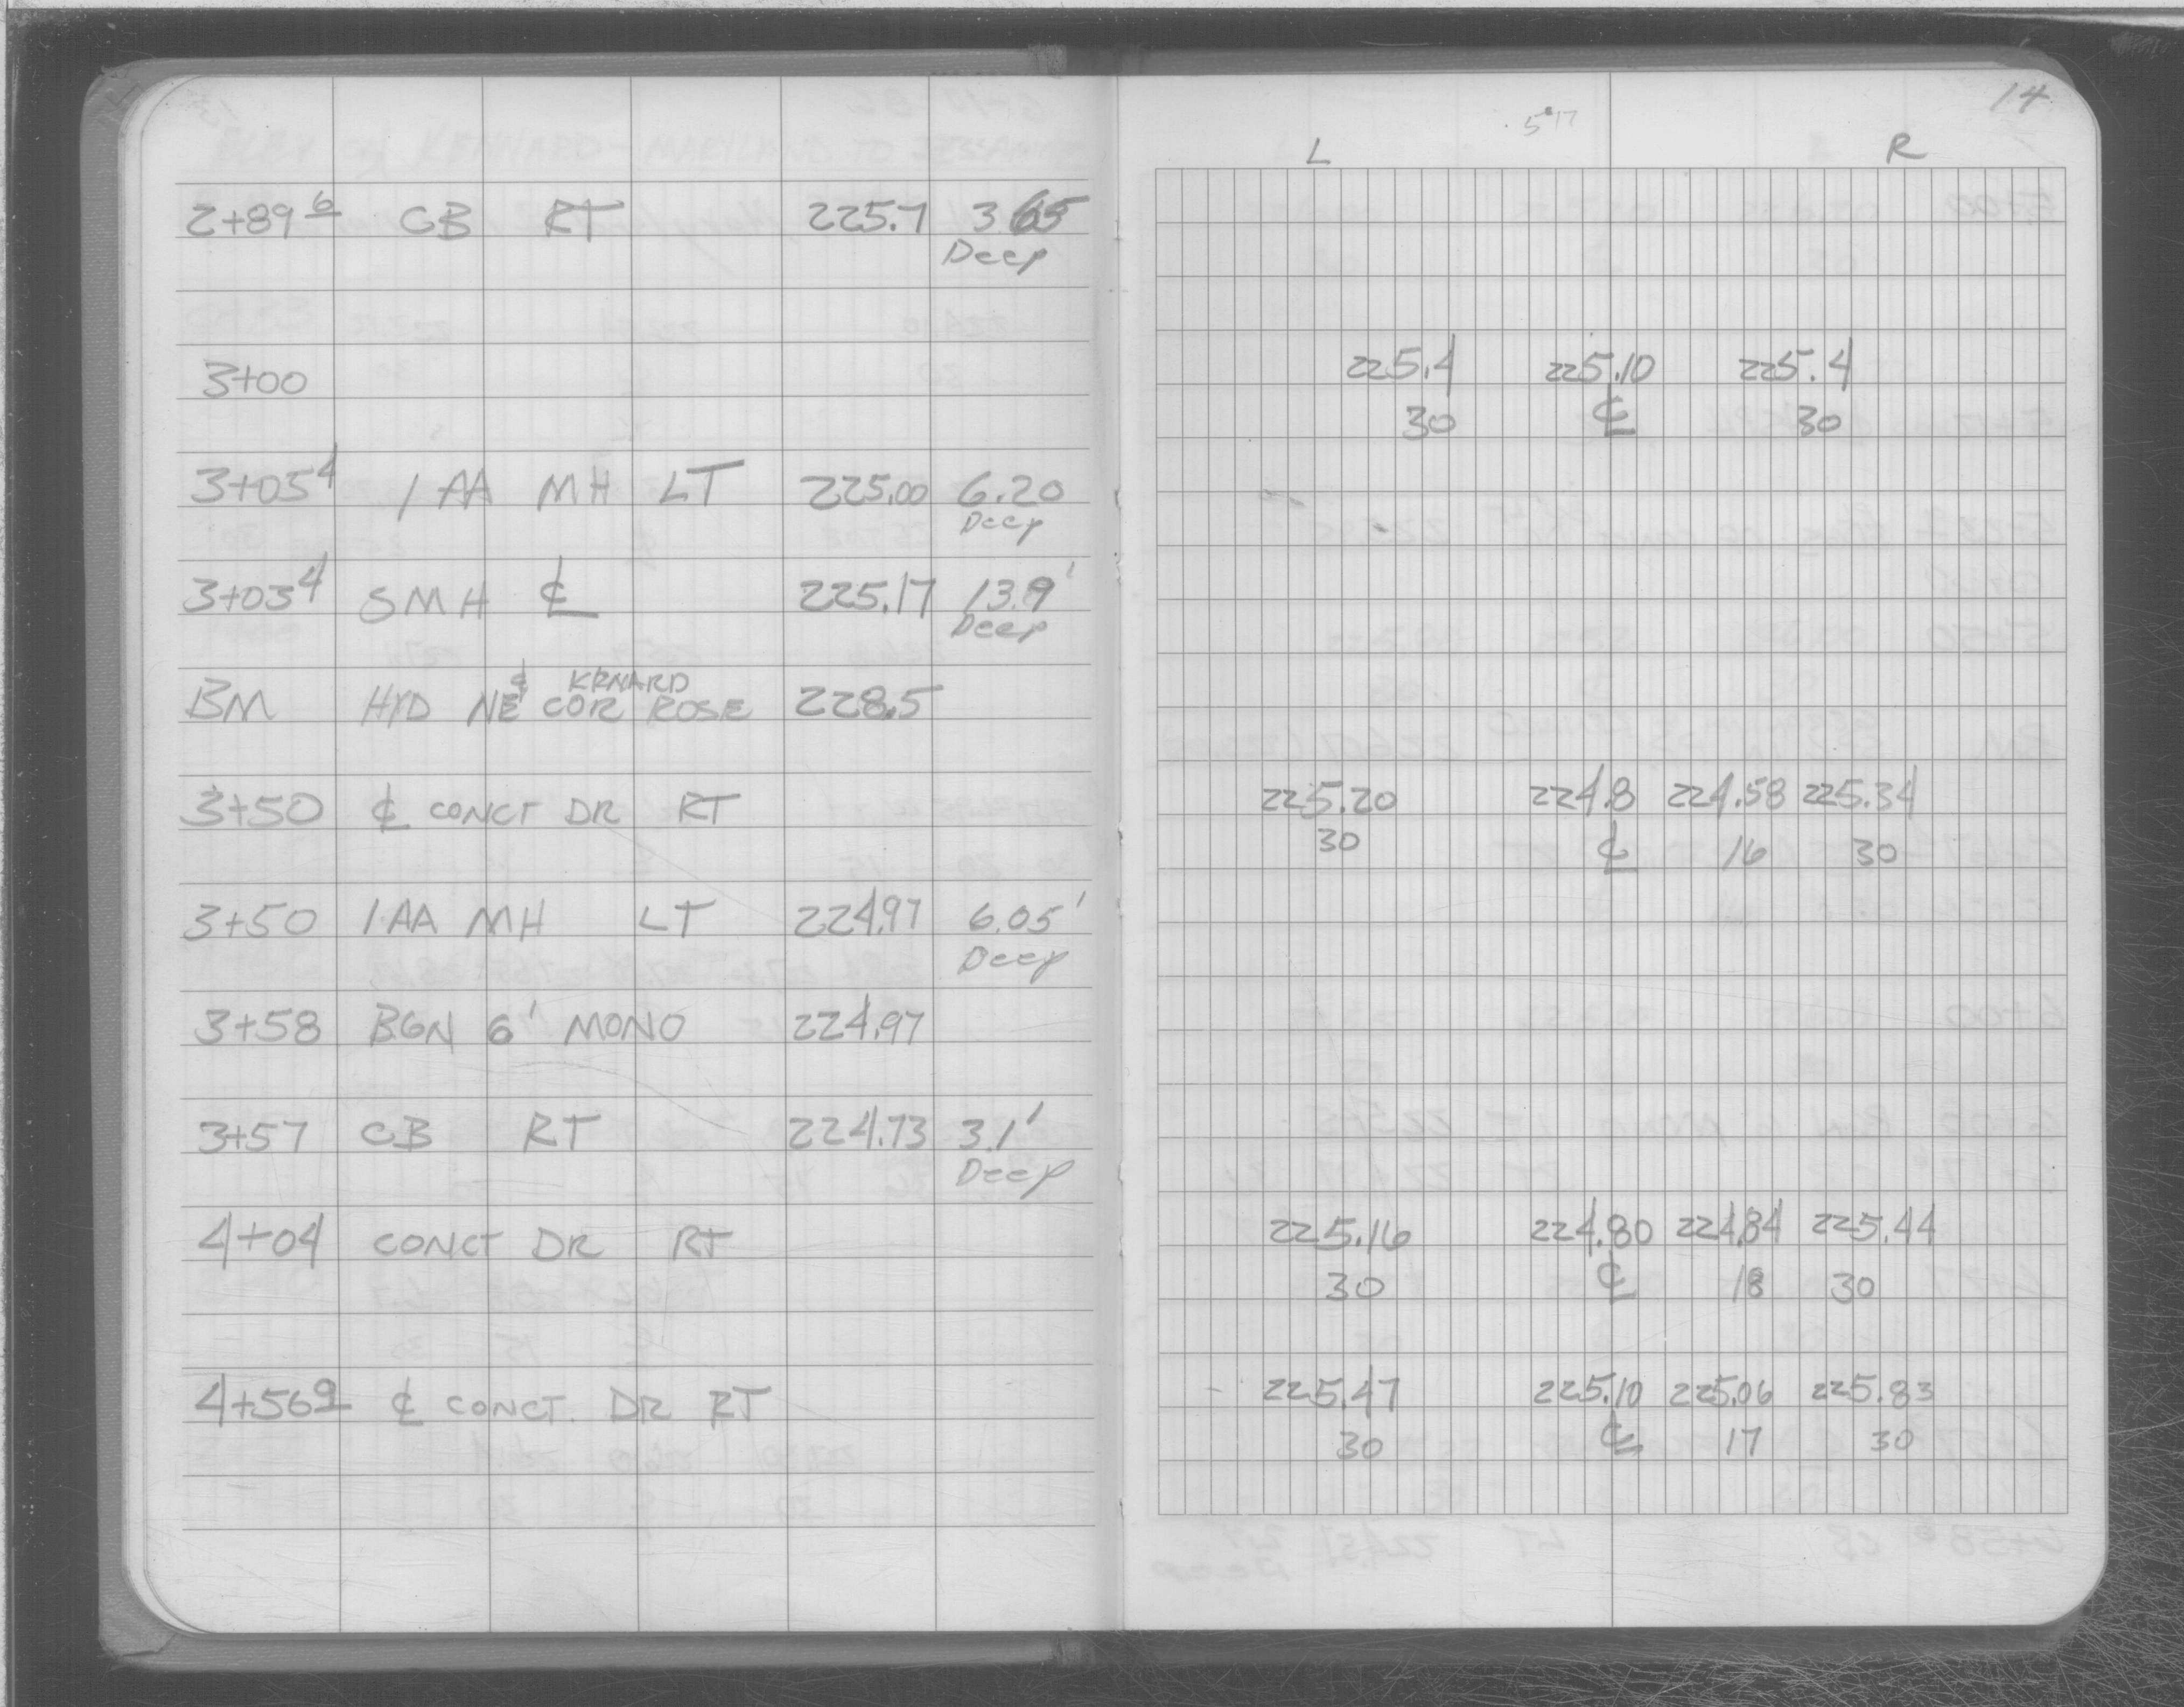 14
L R
2+89 6 CB RT 225.7 3.65
Deep
3+00 225.4 225.10 225.4
30 ℄ 30
3+05 4 1AA MH LT 225.00 6.20
Deep
3+03 4 SMH ℄ 225.17 13.9'
Deep
¢ KENARD
BM HYD NE COR ROSE 228.5
3+50 ℄ CONCT DR RT 225.20 224.8 224.58 225.34
30 ℄ 16 30
3+50 1AA MH LT 224.97 6.05'
Deep
3+58 BGN 6' MONO 224.97
3+57 CB RT 224.73 3.1'
Deep
4+04 CONCT DR RT 225.16 224.80 224.84 225.44
30 ℄ 18 30
4+56 9 ℄ CONCT. DR RT 225.47 225.10 225.06 225.83
30 ℄ 17 30